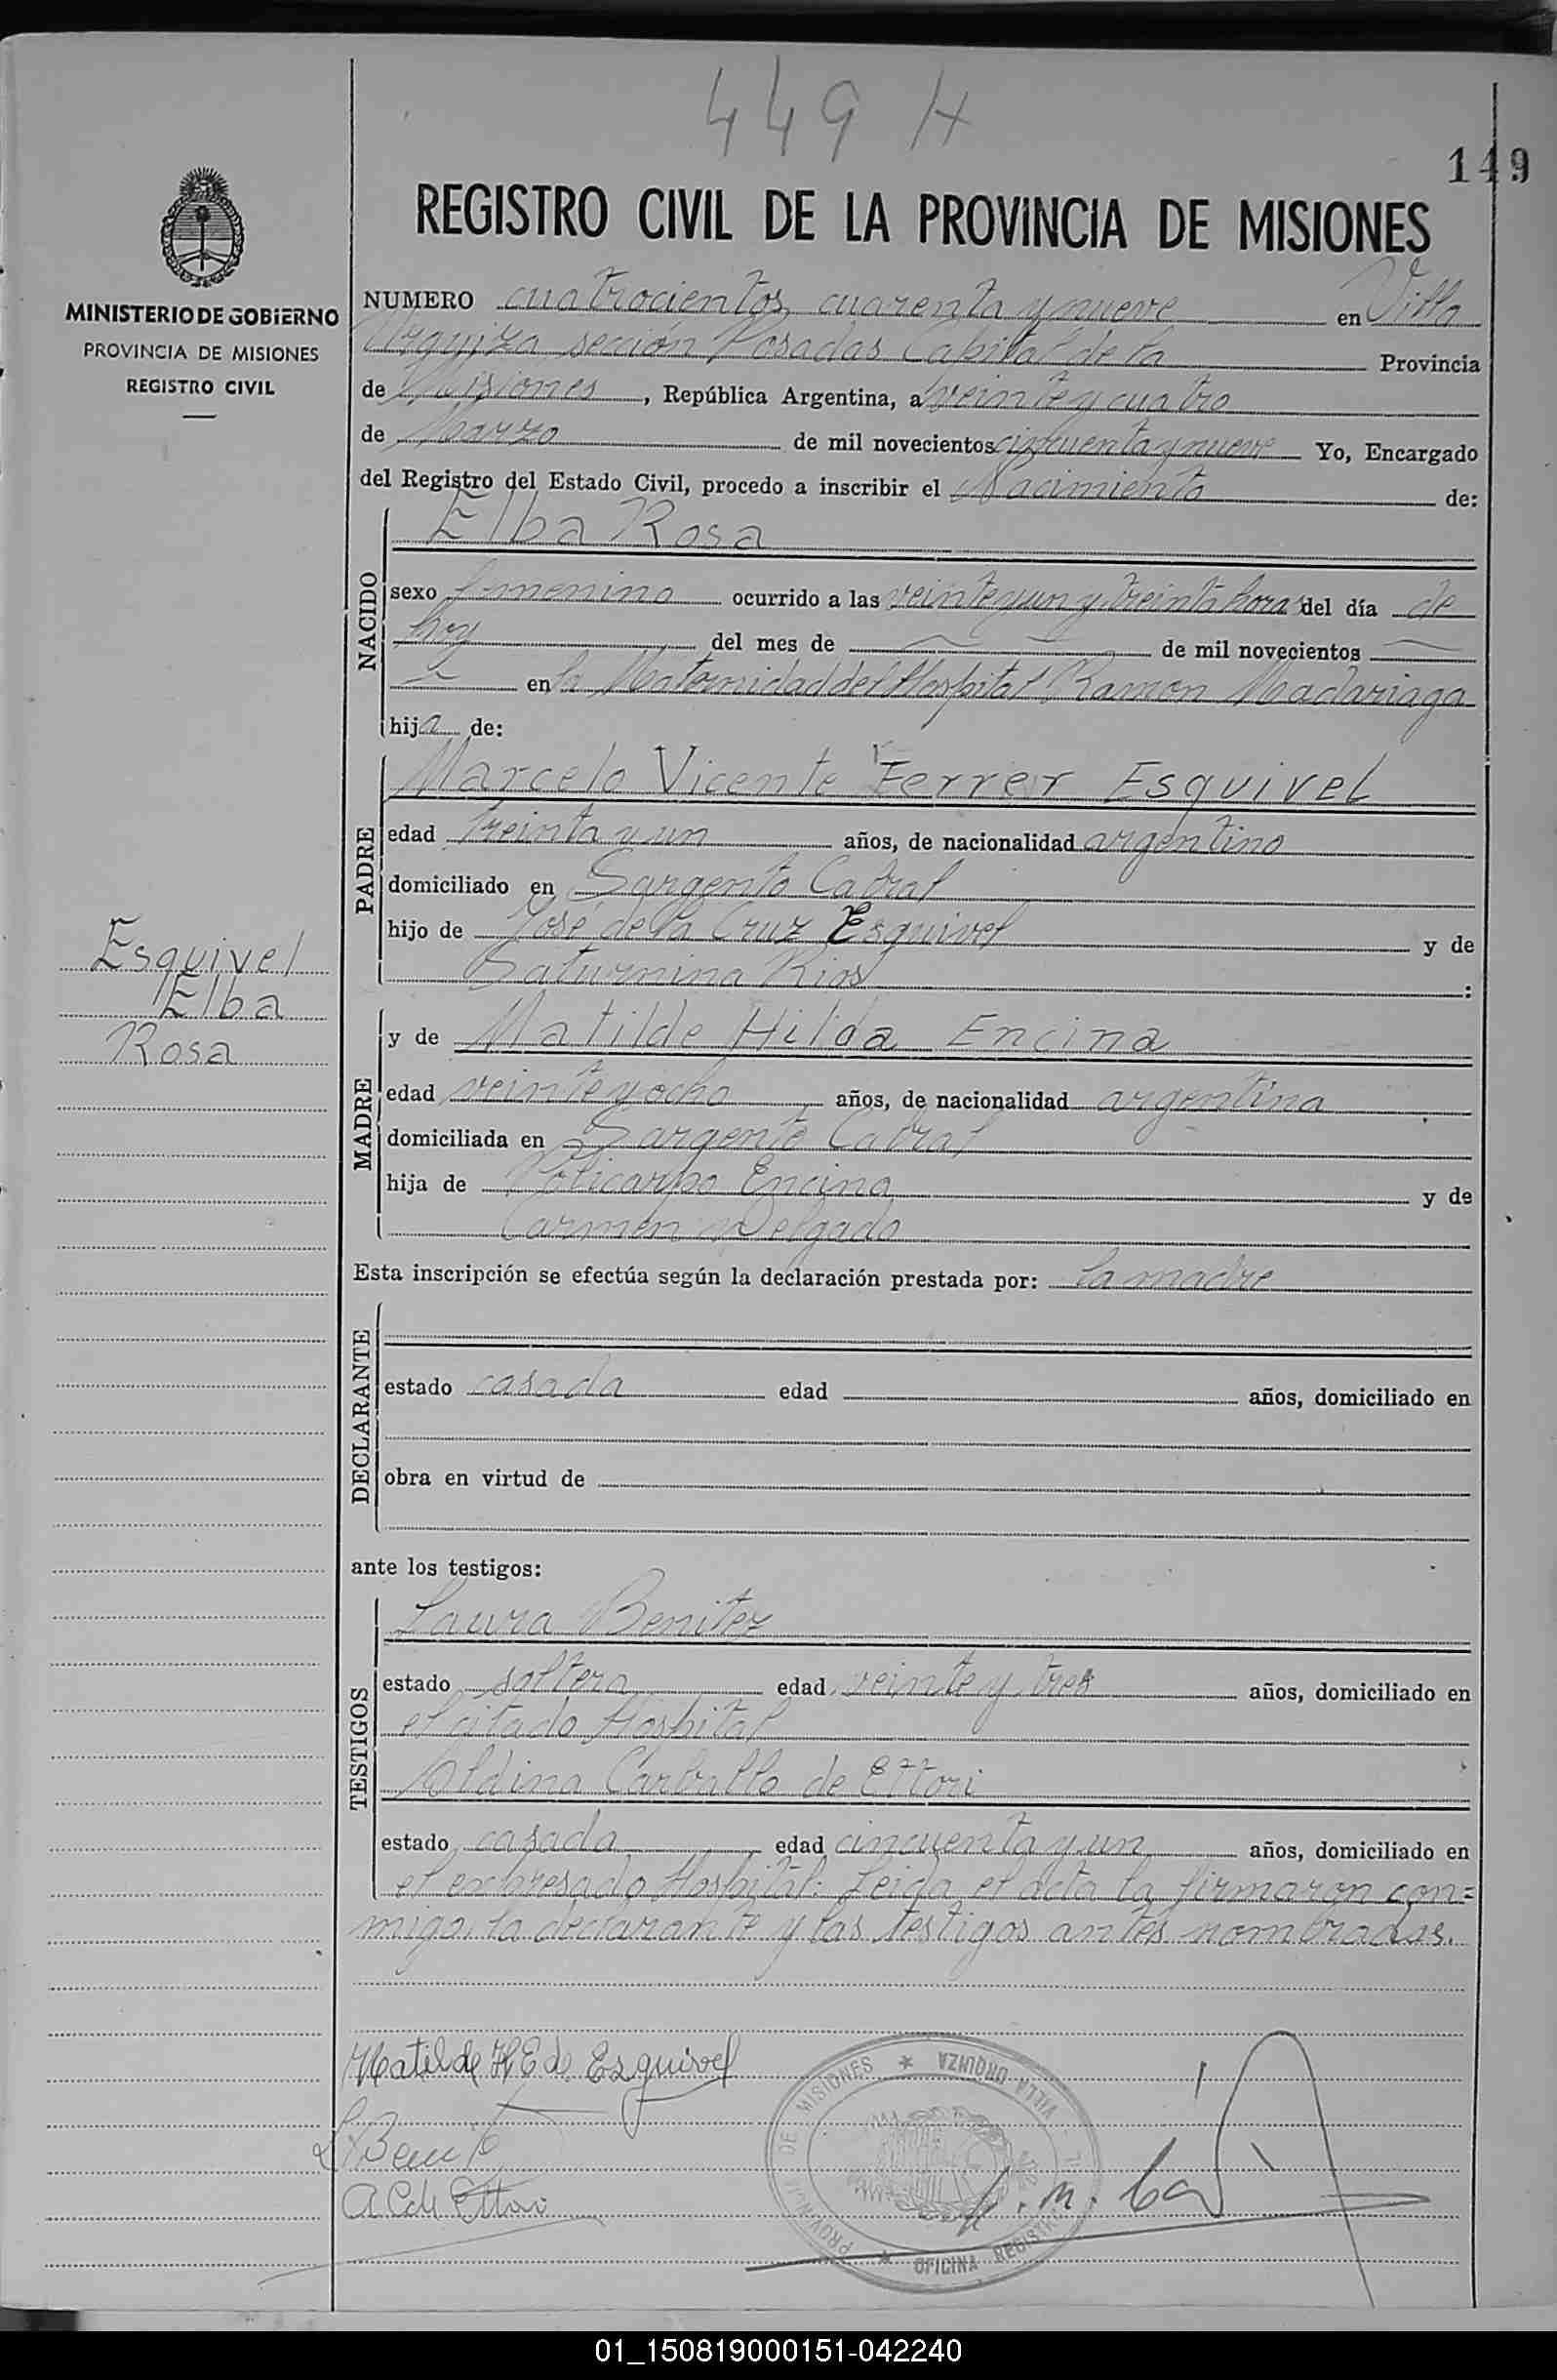 449 H
149
REGISTRO CIVIL DE LA PROVINCIA DE MISIONES
MINISTERIO DE GOBIERNO
PROVINCIA DE MISIONES
REGISTRO CIVIL
NUMERO cuatrocientos cuarenta y nueve en Villa
Urquiza sección Posadas Capital de la Provincia
de Misiones, República Argentina, a veinte y cuatro
de Marzo de mil novecientos cincuenta y nueve Yo, Encargado
del Registro del Estado Civil, procedo a inscribir el Nacimiento de:
NACIDO
Elba Rosa
sexo femenino ocurrido a las veinte y un y treinta horas del día de
hoy del mes de — — de mil novecientos —
— en la Maternidad del Hospital Ramon Madariaga
hija de:
PADRE
Marcelo Vicente Ferrer Esquivel
edad treinta y un años, de nacionalidad argentino
domiciliado en Sargento Cabral
hijo de José de la Cruz Esquivel y de
Saturnina Rios :
Esquivel
Elba
Rosa
MADRE
y de Matilde Hilda Encina
edad veinte y ocho años, de nacionalidad argentina
domiciliada en Sargento Cabral
hija de Policarpo Encina y de
Carmen Delgado
Esta inscripción se efectúa según la declaración prestada por: la madre
DECLARANTE
estado casada edad años, domiciliado en
obra en virtud de
ante los testigos:
TESTIGOS
Laura Benitez
estado soltera edad veinte y tres años, domiciliado en
el citado Hospital
Aldina Carballo de Ettori
estado casada edad cincuenta y un años, domiciliado en
el expresado Hospital: Leida el acta la firmaron con=
migo la declarante y las testigos antes nombradas.
Matilde H E de Esquivel
L Benitez
A C de Ettori
PROVINCIA DE MISIONES * VILLA URQUIZA
* OFICINA REGISTRO
01_150819000151-042240